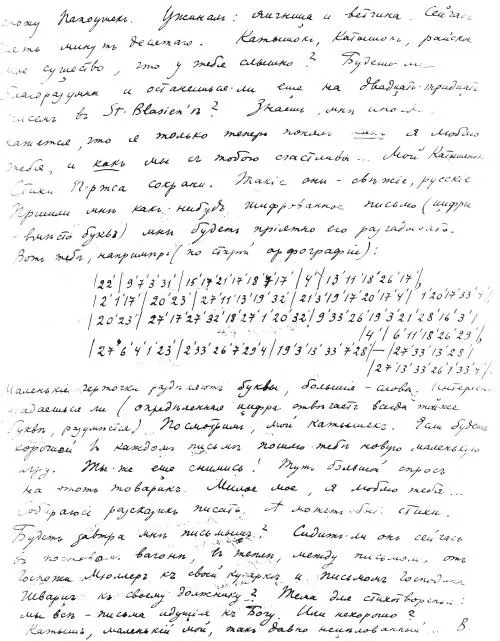 схожу Папоушек. Ужинал: яичница и ветчина. Сейчасъ
шесть минутъ десятаго. Катышокъ, Катышокъ, райское
мое существо, что у тебя слышно? Будешь-ли
благоразумна и останешься-ли еще на двадцать-тридцать
писемъ въ St. Blasien'ѣ? Знаешь, мнѣ иногда
кажется, что я только теперь понялъ какъ я люблю
тебя, и какъ мы съ тобою счастливы... Мой Катышокъ
Стихи Пиржса сохрани. Такіе они - свѣжіе, русскіе
Пришли мнѣ какъ-нибудь шифрованное письмо (цифры
вмѣсто буквъ) мнѣ будетъ пріятно его разгадывать.
Вотъ тебѣ, напримѣръ (по старой орфографіи):
|22'|9'7'3'31'|15'17'21'17'18'7'17'|4'|13'11'18'26'17'|
|2'1'17'|20'23'|27'11'13'19'32'|21'3'19'17'20'17'4'|1'20'17'33'4'|
|20'23'|27'17'27'32'18'27'1'20'32'|9'33'26'19'3'21'28'16'3'|
|4'|6'11'18'26'29'|
|27'6'4'1'23'|2'33'26'7'29'4|19'3'13'33'7'28|—|27'33'13'28|
|27'13'33'26'1'33'4'|
Маленькія черточки раздѣляютъ буквы, большія - слова. Интересно
догадаешься ли (опредѣленная цифра отвѣчаетъ всегда той же
буквѣ, разумѣется) Посмотримъ, мой катышокъ. Если будешь
хорошей въ каждомъ письмѣ пошлю тебѣ новую маленькую
игру. Ты же еще снимись! Тутъ бо́льшой спросъ
на этотъ товарикъ. Милое мое, я люблю тебя...
Собираюсь разсказикъ писать. А можетъ быть стихи.
Будетъ завтра мнѣ письмышъ? Сидитъ ли онъ сейчасъ
въ почтовомъ вагонѣ, въ теплѣ, между письмомъ отъ
Госпожи Мюллеръ къ своей кухаркѣ и письмомъ Господина
Шварцъ къ своему должнику? Тема для стихотворенія:
мы всѣ - письма идущія къ Богу. Или нехорошо?
Катышъ, маленькій мой, такъ давно нецѣлованный... В.